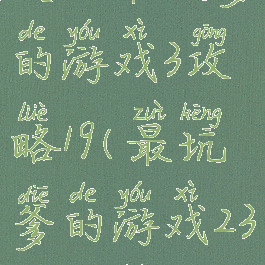 de yóu xì gōng
的游戏3攻
lüè zuì kēng
略19(最坑
diē de yóu xì
爹的游戏23